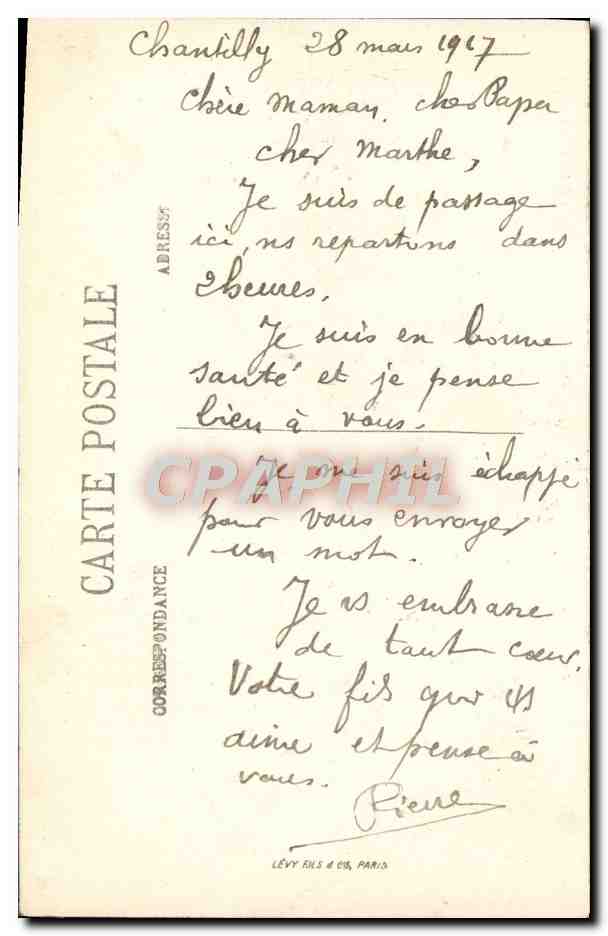 Chantilly 28 mars 1917
Chère Maman, cher Papa
cher Marthe,
Je suis de passage
ici, ns repartons dans
2 heures.
Je suis en bonne
santé et je pense
bien à vous.
Je me suis échappé
pour vous envoyer
un mot.
Je vs embrasse
de tout cœur.
Votre fils qui vs
aime et pense à
vous.
Pierre
CARTE POSTALE
ADRESSE
CORRESPONDANCE
CPAPHIL
LÉVY FILS & Cie, PARIS